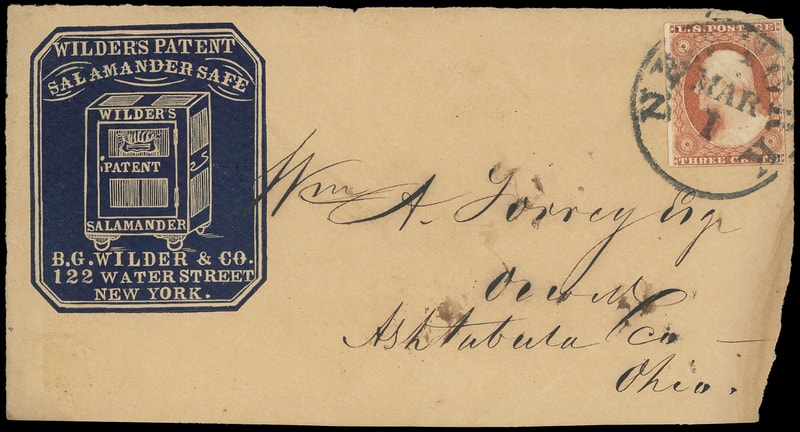 WILDERS PATENT
SALAMANDER SAFE
WILDER'S
PATENT
SALAMANDER
B.G. WILDER & CO.
122 WATER STREET
NEW YORK.
U.S. POSTAGE
THREE CENTS
NEW YORK
MAR
1
Wm A. Torrey Esq
Ashtabula Co
Ohio.